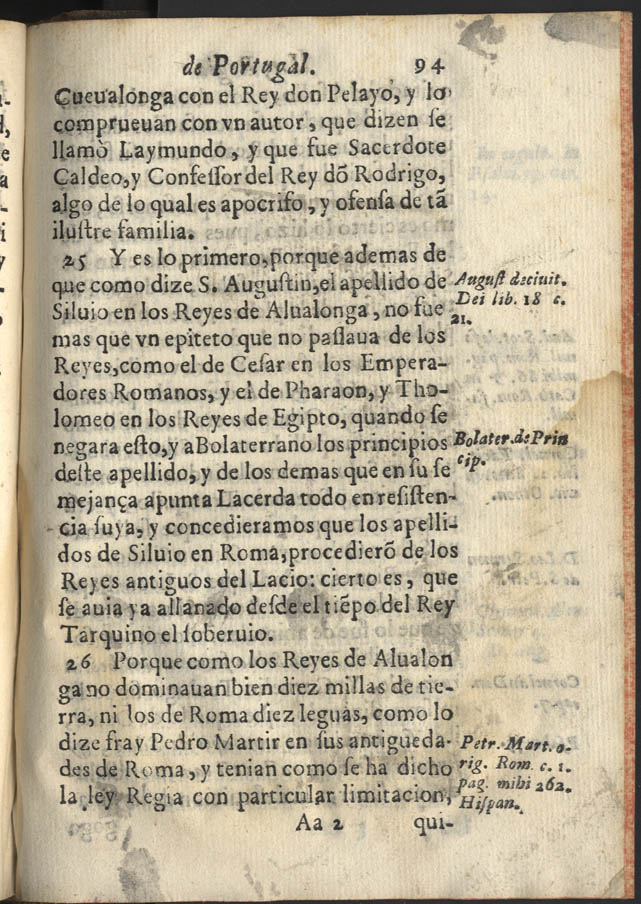 de Portugal. 94
Cueualonga con el Rey don Pelayo, y lo
comprueuan con vn autor, que dizen ſe
llamò Laymundo, y que fue Sacerdote
Caldeo, y Confeſſor del Rey dõ Rodrigo,
algo de lo qual es apocrifo, y ofenſa de tã
iluſtre familia.
25 Y es lo primero, porque ademas de
que como dize S. Auguſtin, el apellido de
Siluio en los Reyes de Alualonga, no fue
mas que vn epiteto que no paſſaua de los
Reyes, como el de Ceſar en los Empera-
dores Romanos, y el de Pharaon, y Tho-
lomeo en los Reyes de Egipto, quando ſe
negara eſto, y a Bolaterrano los principios
deſte apellido, y de los demas que en ſu ſe
mejança apunta Lacerda todo en reſiſten-
cia ſuya, y concedieramos que los apelli-
dos de Siluio en Roma, procedierõ de los
Reyes antiguos del Lacio: cierto es, que
ſe auia ya allanado deſde el tiẽpo del Rey
Tarquino el ſoberuio.
26 Porque como los Reyes de Alualon
ga no dominauan bien diez millas de tie-
rra, ni los de Roma diez leguas, como lo
dize fray Pedro Martir en ſus antigueda-
des de Roma, y tenian como ſe ha dicho
la ley Regia con particular limitacion,
Aa 2 qui-
Auguſt de ciuit.
Dei lib. 18 c.
21.
Bolater. de Prin
cip.
Petr. Mart. o-
rig. Rom. c. 1.
pag. mihi 262.
Hiſpan.